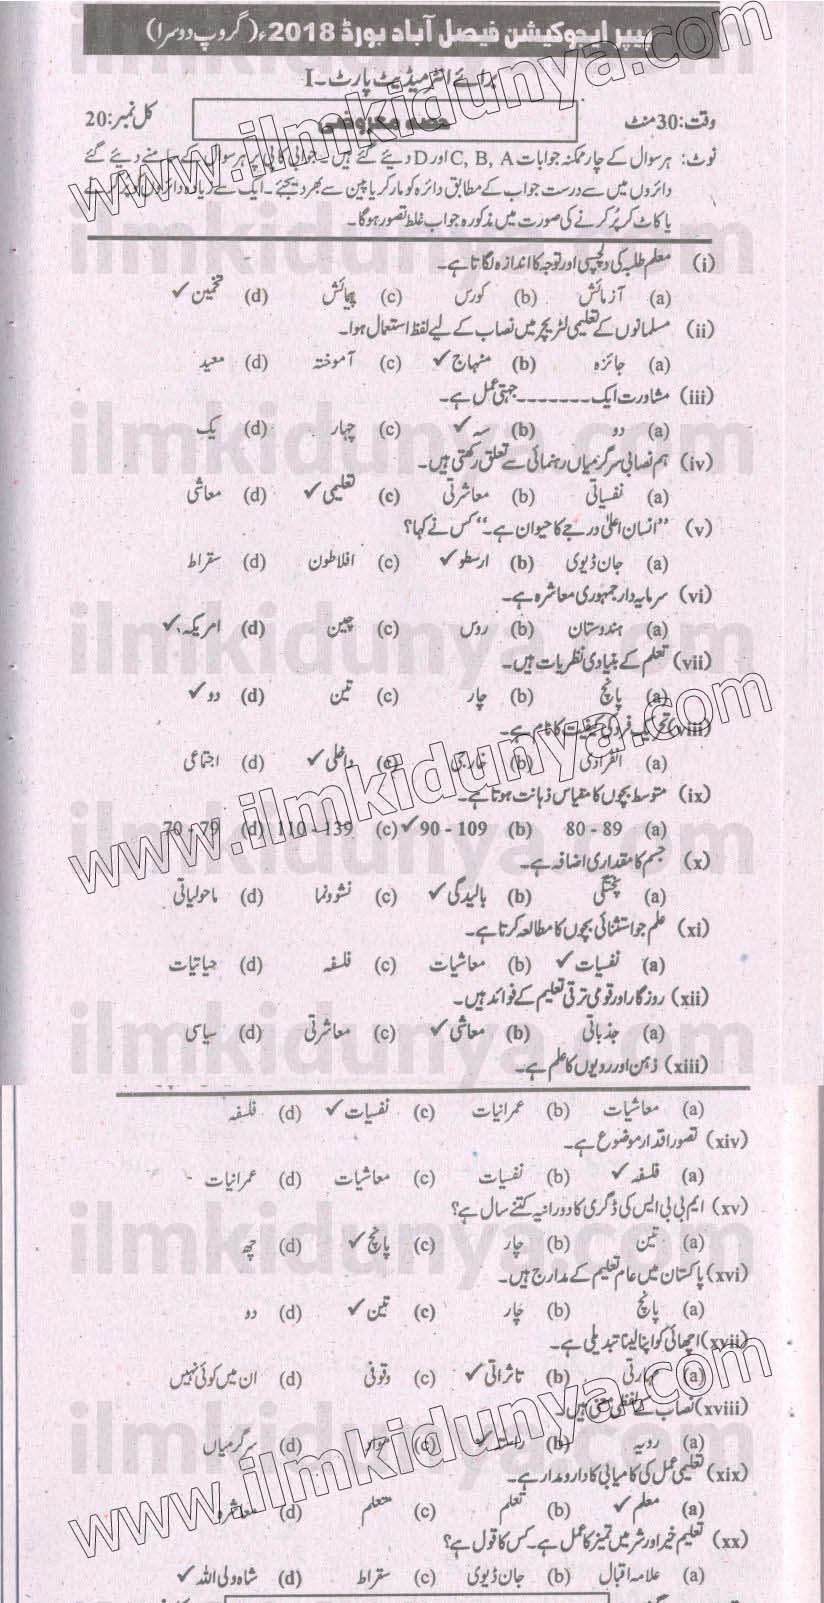 پیپر ایجوکیشن فیصل آباد بورڈ 2018ء (گروپ دوسرا)
برائے انٹرمیڈیٹ پارٹ - I
وقت: 30 منٹ حصہ معروضی کل نمبر: 20
نوٹ: ہر سوال کے چار ممکنہ جوابات A ،B ،C اور D دیئے گئے ہیں۔ جوابی کاپی پر ہر سوال کے سامنے دیئے گئے
دائروں میں سے درست جواب کے مطابق دائرہ کو مارکر یا پین سے بھر دیجئے۔ ایک سے زیادہ دائروں کو پُر کرنے
یا کاٹ کر پُر کرنے کی صورت میں مذکورہ جواب غلط تصور ہوگا۔
(i) معلم طلبہ کی دلچسپی اور توجہ کا اندازہ لگاتا ہے۔
(a) آزمائش (b) کورس (c) پیمائش (d) تخمین ✓
(ii) مسلمانوں کے تعلیمی لٹریچر میں نصاب کے لیے لفظ استعمال ہوا۔
(a) جائزہ (b) منہاج ✓ (c) آموختہ (d) معید
(iii) مشاورت ایک ------- جہتی عمل ہے۔
(a) دو (b) سہ ✓ (c) چہار (d) یک
(iv) ہم نصابی سرگرمیاں رہنمائی سے تعلق رکھتی ہیں۔
(a) نفسیاتی (b) معاشرتی (c) تعلیمی ✓ (d) معاشی
(v) ”انسان اعلیٰ درجے کا حیوان ہے۔“ کس نے کہا؟
(a) جان ڈیوی (b) ارسطو ✓ (c) افلاطون (d) سقراط
(vi) سرمایہ دار جمہوری معاشرہ ہے۔
(a) ہندوستان (b) روس (c) چین (d) امریکہ ✓
(vii) تعلم کے بنیادی نظریات ہیں۔
(a) پانچ (b) چار (c) تین (d) دو ✓
(viii) تحریک فرد کی کیفیت کا نام ہے۔
(a) انفرادی (b) خارجی (c) داخلی ✓ (d) اجتماعی
(ix) متوسط بچوں کا مقیاس ذہانت ہوتا ہے۔
(a) 80 - 89 (b) 90 - 109 ✓ (c) 110 - 139 (d) 70 - 79
(x) جسم کا مقداری اضافہ ہے۔
(a) پختگی (b) بالیدگی ✓ (c) نشوونما (d) ماحولیاتی
(xi) علم جو استثنائی بچوں کا مطالعہ کرتا ہے۔
(a) نفسیات ✓ (b) معاشیات (c) فلسفہ (d) حیاتیات
(xii) روزگار اور قومی ترقی تعلیم کے فوائد ہیں۔
(a) جذباتی (b) معاشی ✓ (c) معاشرتی (d) سیاسی
(xiii) ذہن اور رویوں کا علم ہے۔
(a) معاشیات (b) عمرانیات (c) نفسیات ✓ (d) فلسفہ
(xiv) تصور اقدار موضوع ہے۔
(a) فلسفہ ✓ (b) نفسیات (c) معاشیات (d) عمرانیات
(xv) ایم بی بی ایس کی ڈگری کا دورانیہ کتنے سال ہے؟
(a) تین (b) چار (c) پانچ ✓ (d) چھ
(xvi) پاکستان میں عام تعلیم کے مدارج ہیں۔
(a) پانچ (b) چار (c) تین ✓ (d) دو
(xvii) اچھائی کو اپنا لینا تبدیلی ہے۔
(a) مہارتی (b) تاثراتی ✓ (c) وقوفی (d) ان میں کوئی نہیں
(xviii) نصاب کے لفظی معنی ہیں۔
(a) رویہ (b) راستہ ✓ (c) مواد (d) سرگرمیاں
(xix) تعلیمی عمل کی کامیابی کا دارومدار ہے۔
(a) معلم ✓ (b) تعلم (c) متعلم (d) معاشرہ
(xx) تعلیم خیر اور شر میں تمیز کا عمل ہے۔ کس کا قول ہے؟
(a) علامہ اقبال (b) جان ڈیوی (c) سقراط (d) شاہ ولی اللہ ✓
www.ilmkidunya.com
www.ilmkidunya.com
www.ilmkidunya.com
ilmkidunya.com
ilmkidunya.com
ilmkidunya.com
ilmkidunya.com
ilmkidunya.com
ilmkidunya.com
ilmkidunya.com